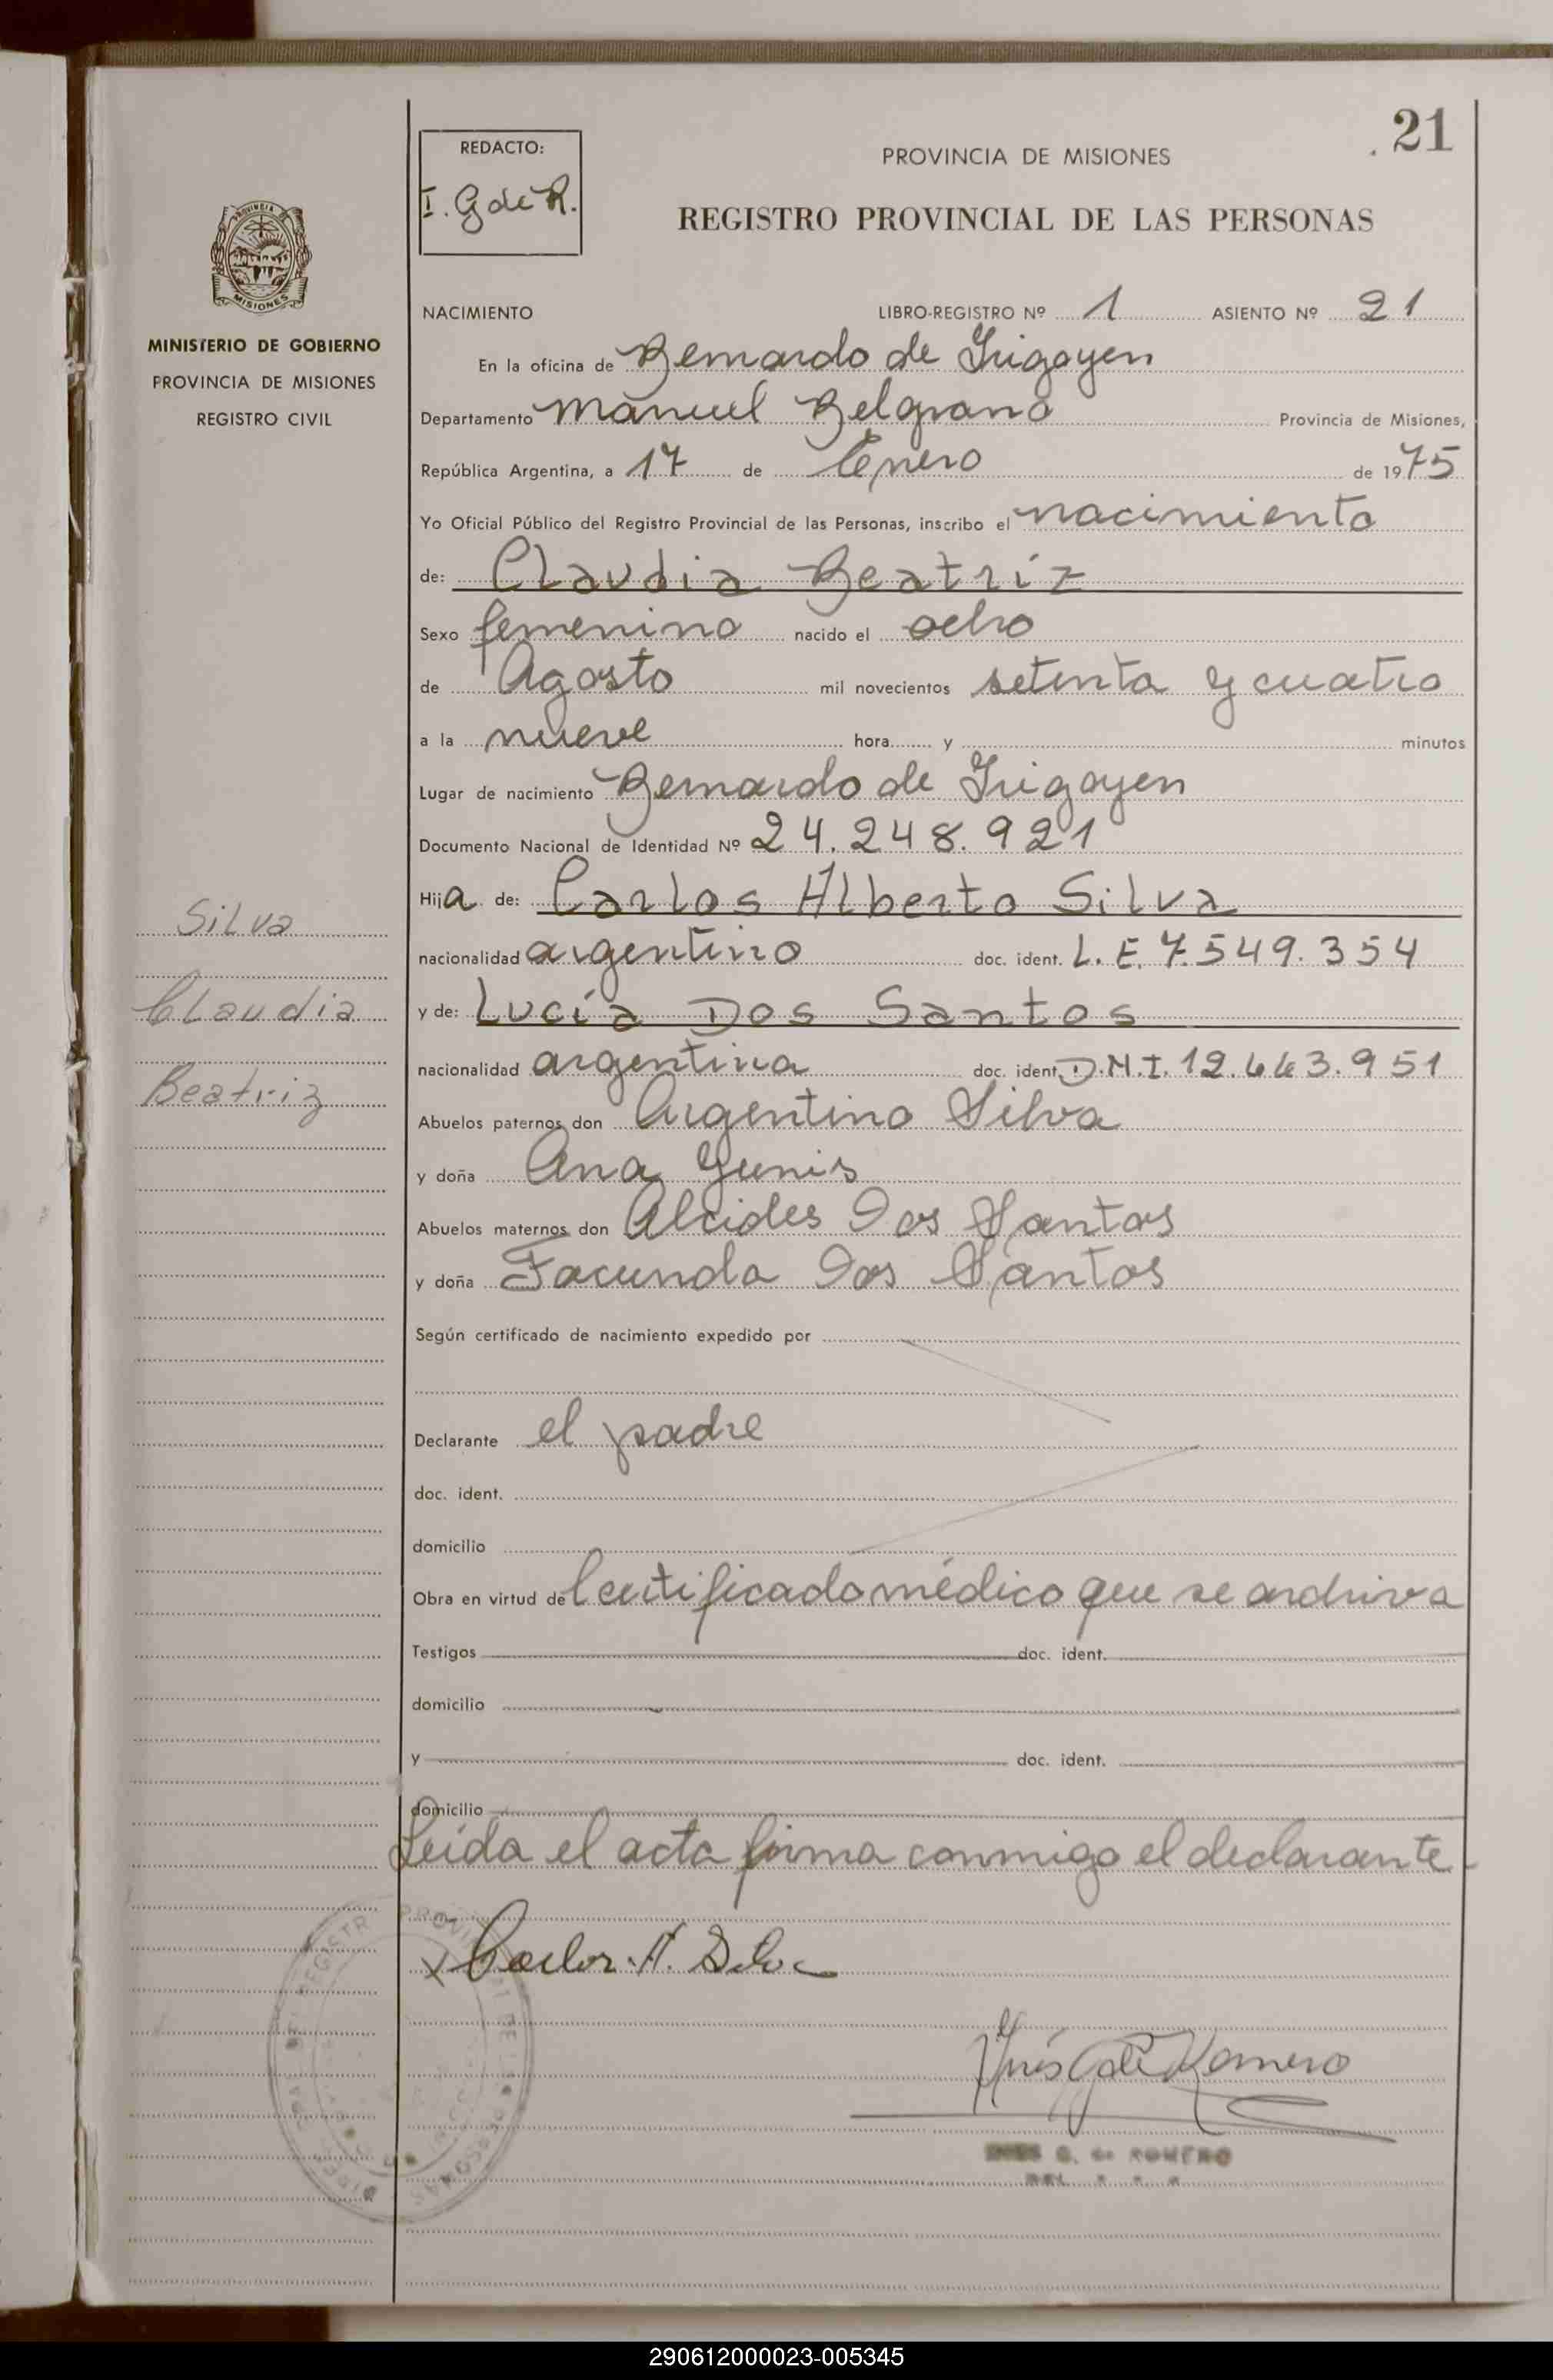 21
REDACTO:
I. G de R.
PROVINCIA DE MISIONES
REGISTRO PROVINCIAL DE LAS PERSONAS
PROVINCIA DE
MISIONES
MINISTERIO DE GOBIERNO
PROVINCIA DE MISIONES
REGISTRO CIVIL
NACIMIENTO LIBRO-REGISTRO Nº 1 ASIENTO Nº 21
En la oficina de Bernardo de Irigoyen
Departamento Manuel Belgrano Provincia de Misiones,
República Argentina, a 17 de Enero de 1975
Yo Oficial Público del Registro Provincial de las Personas, inscribo el nacimiento
de: Claudia Beatríz
Sexo femenino nacido el ocho
de Agosto mil novecientos setenta y cuatro
a la nueve hora y minutos
Lugar de nacimiento Bernardo de Irigoyen
Documento Nacional de Identidad Nº 24.248.921
Hija de: Carlos Alberto Silva
nacionalidad argentino doc. ident. L.E. 7.549.354
y de: Lucía Dos Santos
nacionalidad argentina doc. ident. D.N.I.
Abuelos paternos don Argentino Silva
y doña Ana Yunis
Abuelos maternos don Alcides Dos Santos
y doña Facunda Dos Santos
Según certificado de nacimiento expedido por
Declarante el padre
doc. ident.
domicilio
Obra en virtud de Certificado médico que se archiva
Testigos doc. ident.
domicilio
y doc. ident.
domicilio
Leída el acta firma conmigo el declarante
Silva
Claudia
Beatriz
x Carlos A. Silva
Inés G de Romero
G. de ROMERO
290612000023-005345